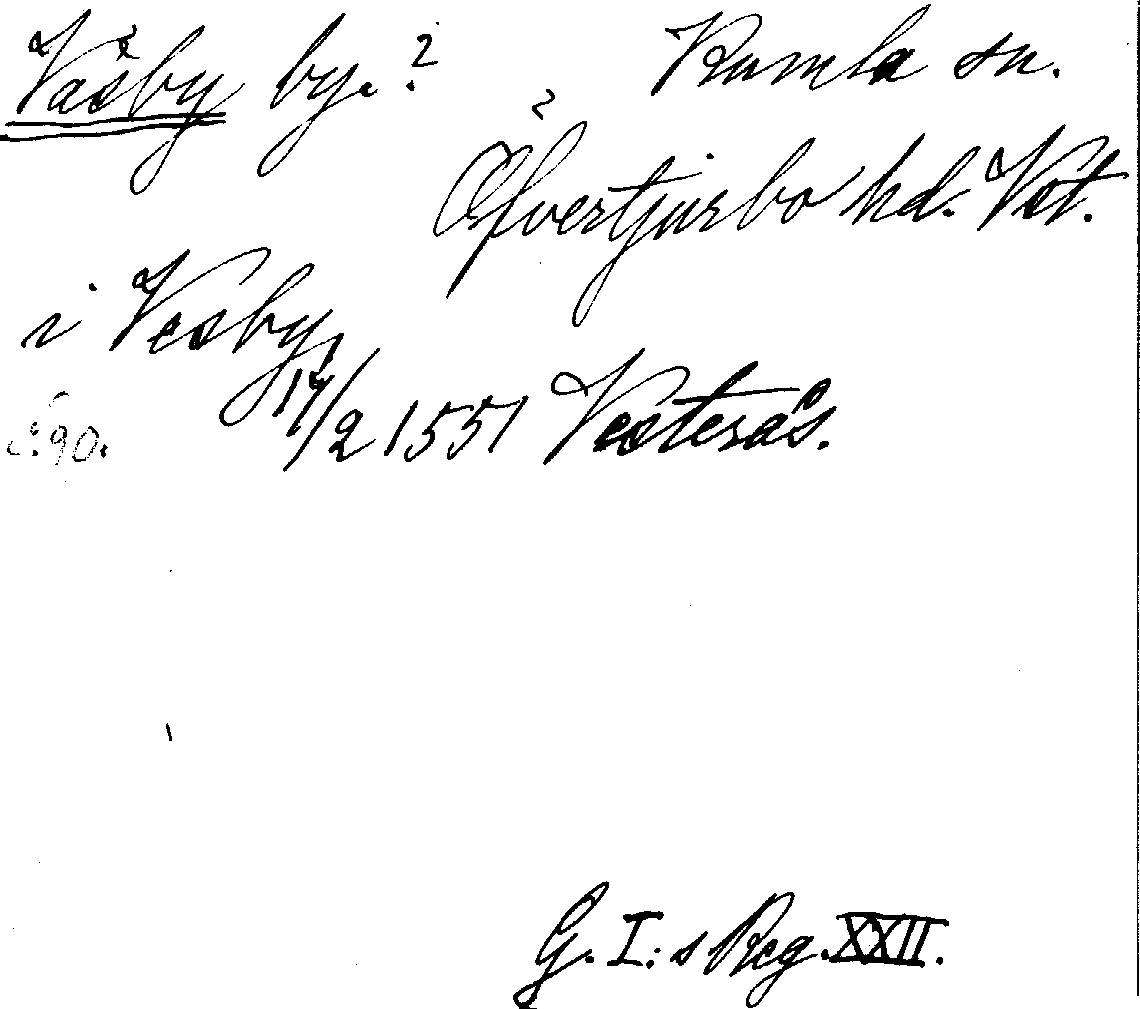 Väsby by.? Kumla sn.
Öfvertjurbo hd. Vst.
i Vesby,
17/2 1551 Vesterås.
s. 90.
G. I:s Reg. XXII.